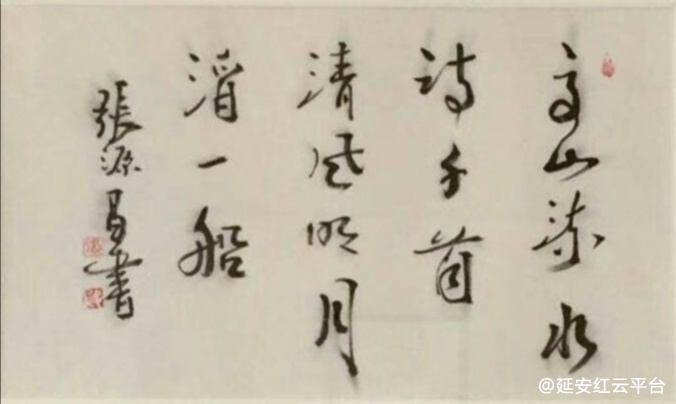 高山流水
詩千首
清風明月
酒一船
張源昌書
@延安红云平台